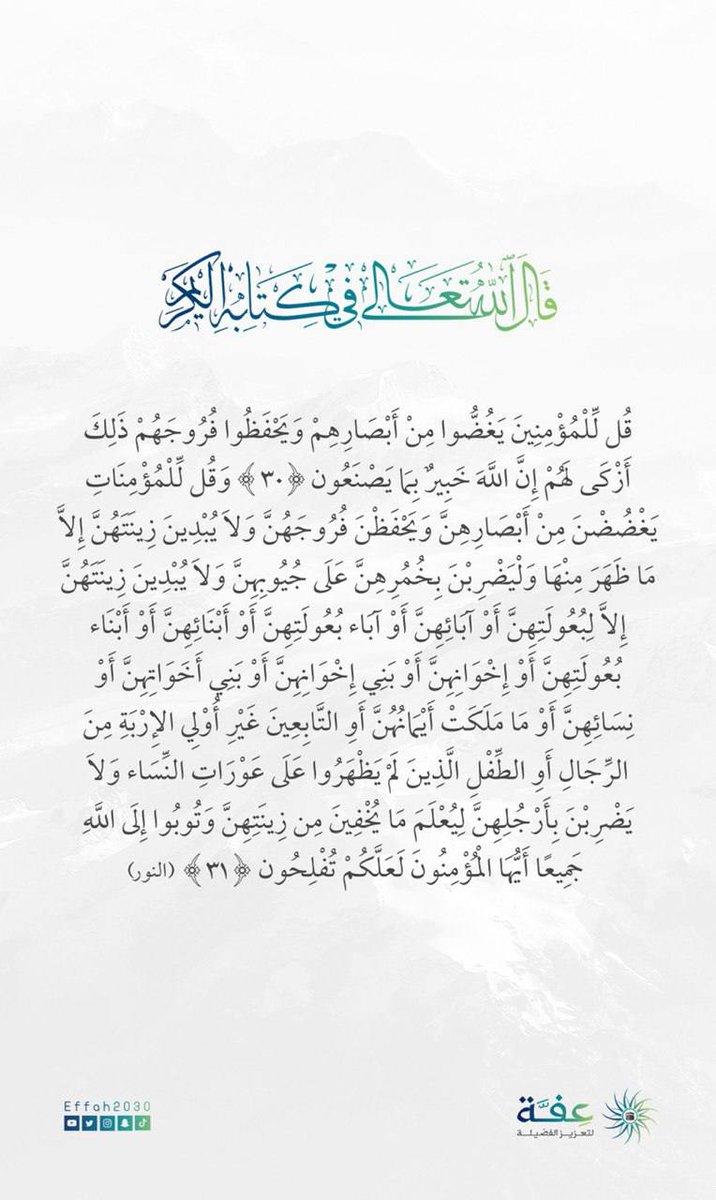 قَالَ ٱللَّهُ تَعَالَىٰ فِي كِتَابِهِ الكَرِيمِ
قُل لِّلْمُؤْمِنِينَ يَغُضُّوا مِنْ أَبْصَارِهِمْ وَيَحْفَظُوا فُرُوجَهُمْ ذَلِكَ
أَزْكَى لَهُمْ إِنَّ اللَّهَ خَبِيرٌ بِمَا يَصْنَعُون ﴿٣٠﴾ وَقُل لِّلْمُؤْمِنَاتِ
يَغْضُضْنَ مِنْ أَبْصَارِهِنَّ وَيَحْفَظْنَ فُرُوجَهُنَّ وَلاَ يُبْدِينَ زِينَتَهُنَّ إِلاَّ
مَا ظَهَرَ مِنْهَا وَلْيَضْرِبْنَ بِخُمُرِهِنَّ عَلَى جُيُوبِهِنَّ وَلاَ يُبْدِينَ زِينَتَهُنَّ
إِلاَّ لِبُعُولَتِهِنَّ أَوْ آبَائِهِنَّ أَوْ آبَاء بُعُولَتِهِنَّ أَوْ أَبْنَائِهِنَّ أَوْ أَبْنَاء
بُعُولَتِهِنَّ أَوْ إِخْوَانِهِنَّ أَوْ بَنِي إِخْوَانِهِنَّ أَوْ بَنِي أَخَوَاتِهِنَّ أَوْ
نِسَائِهِنَّ أَوْ مَا مَلَكَتْ أَيْمَانُهُنَّ أَوِ التَّابِعِينَ غَيْرِ أُوْلِي الإِرْبَةِ مِنَ
الرِّجَالِ أَوِ الطِّفْلِ الَّذِينَ لَمْ يَظْهَرُوا عَلَى عَوْرَاتِ النِّسَاء وَلاَ
يَضْرِبْنَ بِأَرْجُلِهِنَّ لِيُعْلَمَ مَا يُخْفِينَ مِن زِينَتِهِنَّ وَتُوبُوا إِلَى اللَّهِ
جَمِيعًا أَيُّهَا الْمُؤْمِنُونَ لَعَلَّكُمْ تُفْلِحُون ﴿٣١﴾ (النور)
Effah2030
عِفَّة
لتعزيز الفضيلة